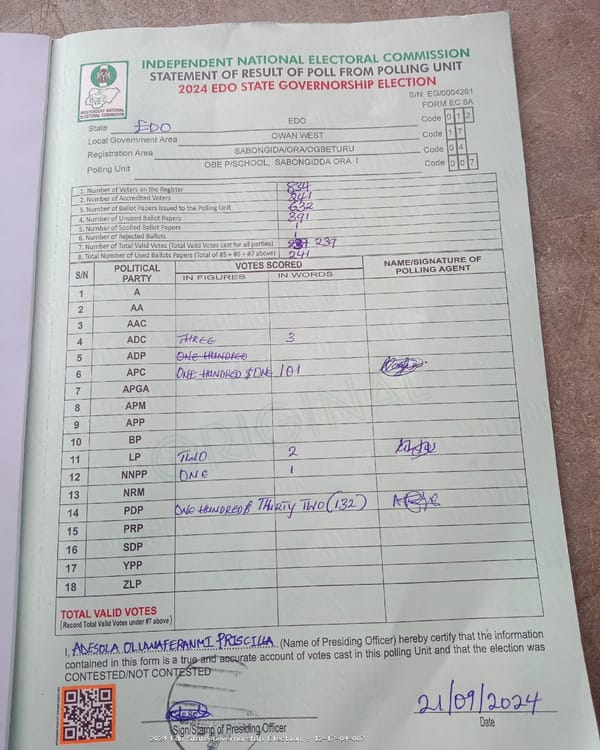 INDEPENDENT NATIONAL ELECTORAL COMMISSION
STATEMENT OF RESULT OF POLL FROM POLLING UNIT
2024 EDO STATE GOVERNORSHIP ELECTION
INEC
INDEPENDENT NATIONAL ELECTORAL COMMISSION
S/N: EG/0004261
FORM EC 8A
State EDO EDO Code 0 1 2
Local Government Area OWAN WEST Code 1 7
Registration Area SABONGIDA/ORA/OGBETURU Code 0 4
Polling Unit OBE P/SCHOOL, SABONGIDDA ORA I Code 0 0 7
1. Number of Voters on the Register 834
2. Number of Accredited Voters 241
3. Number of Ballot Papers Issued to the Polling Unit 632
4. Number of Unused Ballot Papers 391
5. Number of Spoiled Ballot Papers 1
6. Number of Rejected Ballots 1
7. Number of Total Valid Votes (Total Valid Votes cast for all parties) 239
8. Total Number of Used Ballots Papers (Total of #5 + #6 + #7 above) 241
S/N POLITICAL PARTY VOTES SCORED NAME/SIGNATURE OF POLLING AGENT
IN FIGURES IN WORDS
1 A
2 AA
3 AAC
4 ADC THREE 3
5 ADP ONE HUNDRED
6 APC ONE HUNDRED & ONE 101
7 APGA
8 APM
9 APP
10 BP
11 LP TWO 2
12 NNPP ONE 1
13 NRM
14 PDP ONE HUNDRED & THIRTY TWO (132)
15 PRP
16 SDP
17 YPP
18 ZLP
ORIGINAL
TOTAL VALID VOTES
(Record Total Valid Votes under #7 above)
I, ADESOLA OLUWAFERANMI PRISCILLA (Name of Presiding Officer) hereby certify that the information
contained in this form is a true and accurate account of votes cast in this polling Unit and that the election was
CONTESTED/NOT CONTESTED
21/09/2024
Sign/Stamp of Presiding Officer Date
2024 Edo State Governorship Election - 12-17-04-007